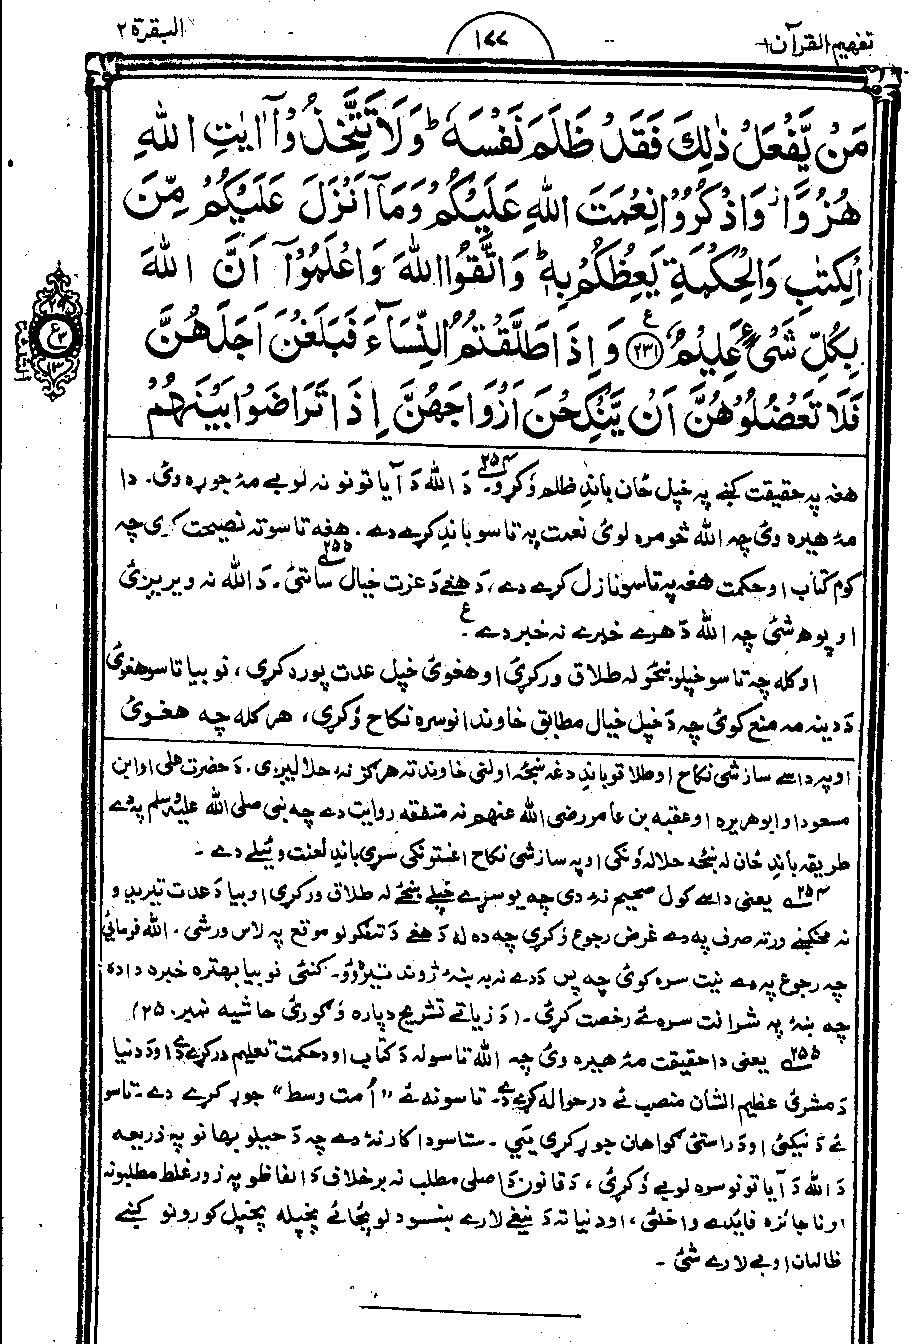 تفهیم القرآن-۱
۱۷۷
البقرة ۲
مَنْ يَّفْعَلْ ذٰلِكَ فَقَدْ ظَلَمَ نَفْسَهٗ ؕ وَلَا تَتَّخِذُوْۤا اٰيٰتِ اللّٰهِ
هُزُوًا ۫ وَّاذْكُرُوْا نِعْمَتَ اللّٰهِ عَلَيْكُمْ وَمَاۤ اَنْزَلَ عَلَيْكُمْ مِّنَ
الْكِتٰبِ وَالْحِكْمَةِ يَعِظُكُمْ بِهٖ ؕ وَاتَّقُوا اللّٰهَ وَاعْلَمُوْۤا اَنَّ اللّٰهَ
بِكُلِّ شَیْءٍ عَلِيْمٌ ﴿۲۳۱﴾ ع وَاِذَا طَلَّقْتُمُ النِّسَآءَ فَبَلَغْنَ اَجَلَهُنَّ
فَلَا تَعْضُلُوْهُنَّ اَنْ يَّنْكِحْنَ اَزْوَاجَهُنَّ اِذَا تَرَاضَوْا بَيْنَهُمْ
هغه په حقیقت کښے په خپل ځان باندِ ظلم وُکړو۔ ۲۵۴ دَ الله دَ آیاتونو نه لوبے مۀ جوړه وئ. دا
مۀ هیره وئ چه الله څومره لوئ نعمت په تاسو باندِ کړے دے. هغه تاسو ته نصیحت کړی چه
کوم کتاب او حکمت هغه په تاسو نازل کړے دے، دَ هغے دَ عزت خیال ساتئ۔ ۲۵۵ دَ الله نه ویریږئ
او پوهه شئ چه الله دَ هرے خبرے نه خبر دے۔ ع
او کله چه تاسو خپلو ښځو له طلاق ورکړئ او هغوئ خپل عدت پوره کړی، نو بیا تاسو هغوئ
دَ دینه مه منع کوئ چه دَ خپل خیال مطابق خاوندانو سره نکاح وُکړی، هر کله چه هغوئ
او په داسے سازشی نکاح او طلاقو باندِ دغه ښځه اولنی خاوند ته هر ګز نۀ حلالیږی. دَ حضرت علی او ابن
مسعود او ابوهریره او عقبه بن عامر رضی الله عنهم نه متفقه روایت دے چه نبی صلی الله علیه وسلم په دے
طریقه باندِ ځان له ښځه حلالوُنکی او په سازشی نکاح اغستونکی سړی باندِ لعنت وئیلے دے۔
۲۵۴ یعنی داسے کول صحیح نۀ دی چه یو سړے خپلے ښځے له طلاق ورکړی او بیا دَ عدت تیریدو
نه مخکښے ورته صرف په دے غرض رجوع وُکړی چه ده له دَ هغے دَ تنګولو موقع په لاس ورشی. الله فرمائی
چه رجوع په دے نیت سره کوئ چه پس دَ دے نه به ښۀ ژوند تیرَوُو۔ کنئی نو بیا بهتره خبره دا ده
چه ښۀ په شرافت سره ئے رخصت کړئ۔ (دَ زیاتے تشریح دپاره وُ ګورئ حاشیه نمبر ۲۵۰)
۲۵۵ یعنی دا حقیقت مۀ هیره وئ چه الله تاسو له دَ کتاب او دَ حکمت تعلیم درکړے دے او دَ دنیا
دَ مشرئ عظیم الشان منصب ئے درحواله کړے دے۔ تاسو نه ئے "اُمت وسط" جوړ کړے دے۔ تاسو
ئے دَ نیکئ او دَ راستئ ګواهان جوړ کړی یئ۔ ستاسو دا کار نۀ دے چه دَ حیلو بهانو په ذریعه
دَ الله دَ آیاتونو سره لوبے وُکړئ، دَ قانون دَ اصلی مطلب نه برخلاف دَ الفاظو په زور غلط مطلبونه
او ناجائزه فایدے واخلئ، او دنیا ته دَ نیغے لارے ښودلو بجائے پخپله پخپل کورونو کښے
ظالمان او بے لارے شئ۔